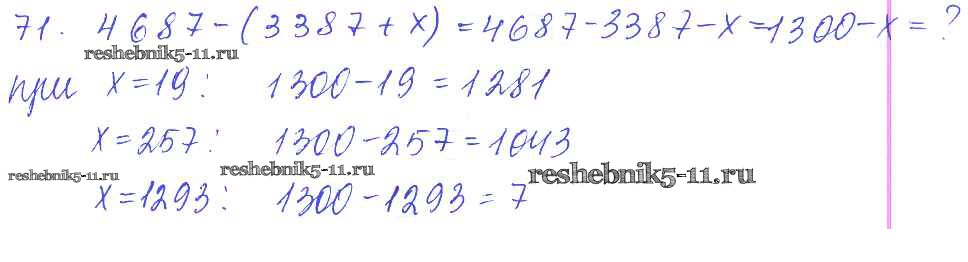 71. 4687-(3387+x)=4687-3387-x=1300-x=?
reshebnik5-11.ru
при x=19: 1300-19=1281
x=257: 1300-257=1043
reshebnik5-11.ru
reshebnik5-11.ru
reshebnik5-11.ru
x=1293: 1300-1293=7